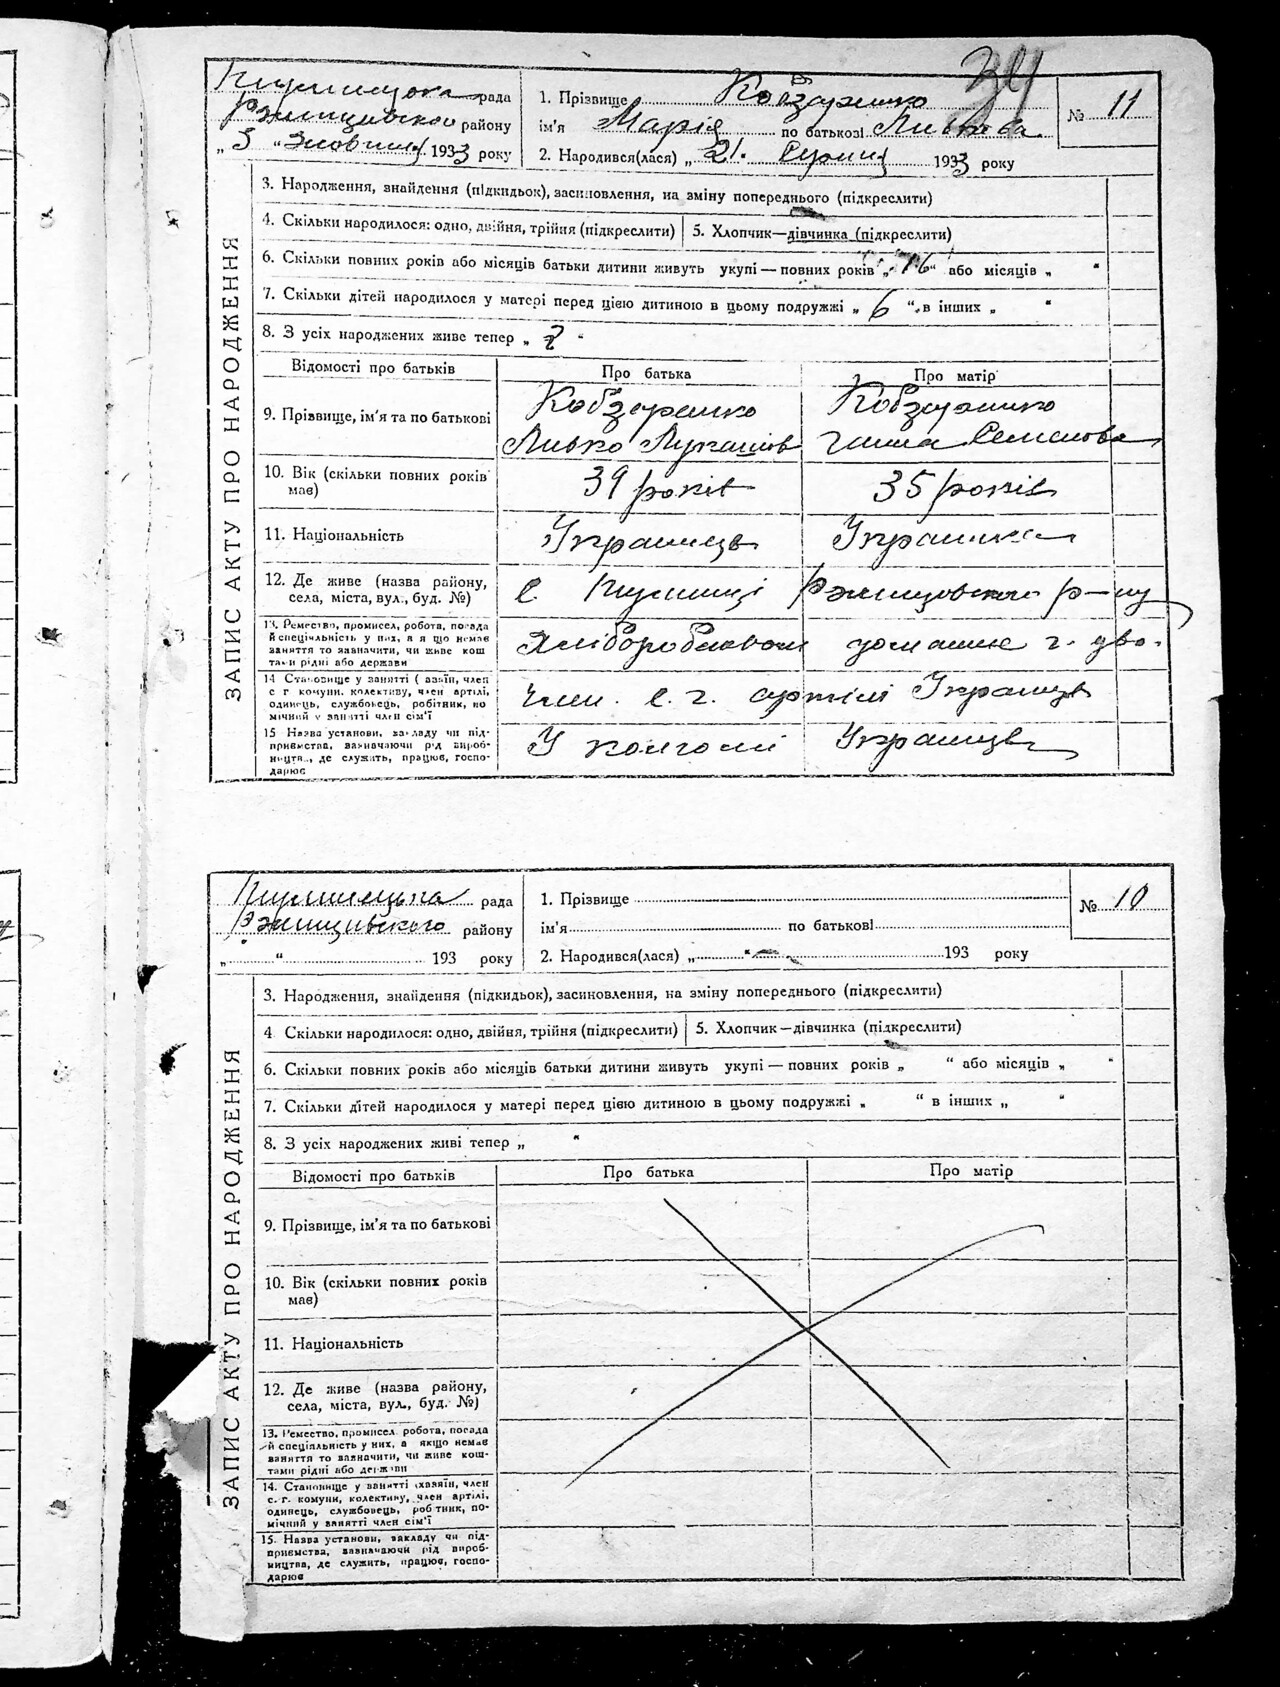 34
рада
району
„ 3 “ Жовтня 1933 року
1. Прізвище Кобзаренко
ім'я Марія по батькові Левкова
2. Народився(лася) „ 21. Серпня 1933 року
№ 11
ЗАПИС АКТУ ПРО НАРОДЖЕННЯ
3. Народження, знайдення (підкидьок), засиновлення, на зміну попереднього (підкреслити)
4. Скільки народилося: одно, двійня, трійня (підкреслити) 5. Хлопчик—дівчинка (підкреслити)
6. Скільки повних років або місяців батьки дитини живуть укупі — повних років „ 16 “ або місяців „ “
7. Скільки дітей народилося у матері перед цією дитиною в цьому подружжі „ 6 “ в інших „ “
8. З усіх народжених живе тепер „ 2 “
Відомості про батьків Про батька Про матір
9. Прізвище, ім'я та по батькові Кобзаренко Кобзаренко
Левко Лукашов Ганна Семенова
10. Вік (скільки повних років має) 39 років 35 років
11. Національність Українець Українка
12. Де живе (назва району, с.
села, міста, вул., буд. №) р-ну
13. Ремество, промисел, робота, посада
й спеціяльність у них, а якщо немає
заняття то зазначити, чи живе кош
тами рідні або держави
Хліборобство домашнє г.
14 Становище у занятті (хазяїн, член
с г комуни, колективу, член артілі,
одинець, службовець, робітник, по
мічний у занятті член сім'ї
Член с. г. артілі Українець
15 Назва установи, закладу чи під-
приємства, зазначаючи рід вироб-
ництва, де служить, працює, госпо-
дарює
У колгоспі Українець
рада
району
„ “ 193 року
1. Прізвище
ім'я по батькові
2. Народився(лася) „ “ 193 року
№ 10
ЗАПИС АКТУ ПРО НАРОДЖЕННЯ
3. Народження, знайдення (підкидьок), засиновлення, на зміну попереднього (підкреслити)
4. Скільки народилося: одно, двійня, трійня (підкреслити) 5. Хлопчик—дівчинка (підкреслити)
6. Скільки повних років або місяців батьки дитини живуть укупі — повних років „ “ або місяців „ “
7. Скільки дітей народилося у матері перед цією дитиною в цьому подружжі „ “ в інших „ “
8. З усіх народжених живі тепер „ “
Відомості про батьків Про батька Про матір
9. Прізвище, ім'я та по батькові
10. Вік (скільки повних років
має)
11. Національність
12. Де живе (назва району,
села, міста, вул., буд. №)
13. Ремество, промисел, робота, посада
й спеціяльність у них, а якщо немає
заняття то зазначити, чи живе кош-
тами рідні або держави
14. Становище у занятті (хазяїн, член
с. г. комуни, колективу, член артілі,
одинець, службовець, робітник, по-
мічний у занятті член сім'ї
15. Назва установи, закладу чи під-
приємства, зазначаючи рід вироб-
ництва, де служить, працює, госпо-
дарює